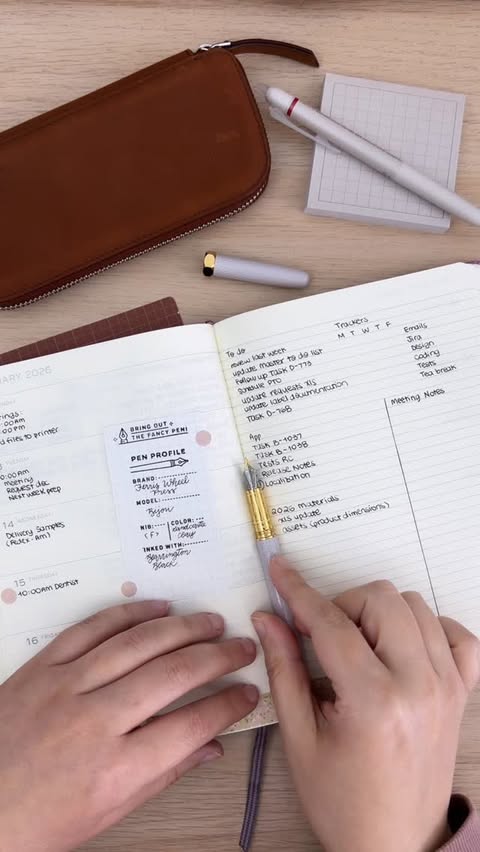 ARY 2026
tings
:00AM
0PM
d files to printer
0:00AM
meeting
Request doc
Next week prep
14 WEDNESDAY
Delivery samples
(Fedex - AM)
15 THURSDAY
10:00AM Dentist
16
BRING OUT
THE FANCY PEN!
PEN PROFILE
BRAND:
Ferry Wheel
Press
MODEL:
Bijou
NIB: COLOR:
<F>
Clay
INKED WITH:
Black
To do
review last week
update master to do list
Follow up Task D-773
Schedule PTO
update requests XLS
update label documentation
Task D-768
App
Task B-1037
Task B-1038
Tests RC
Release Notes
Localization
2026 materials
XLS update
assets (product dimensions)
Trackers
M T W T F
Emails
Jira
Design
Coding
Tests
Tea break
Meeting Notes